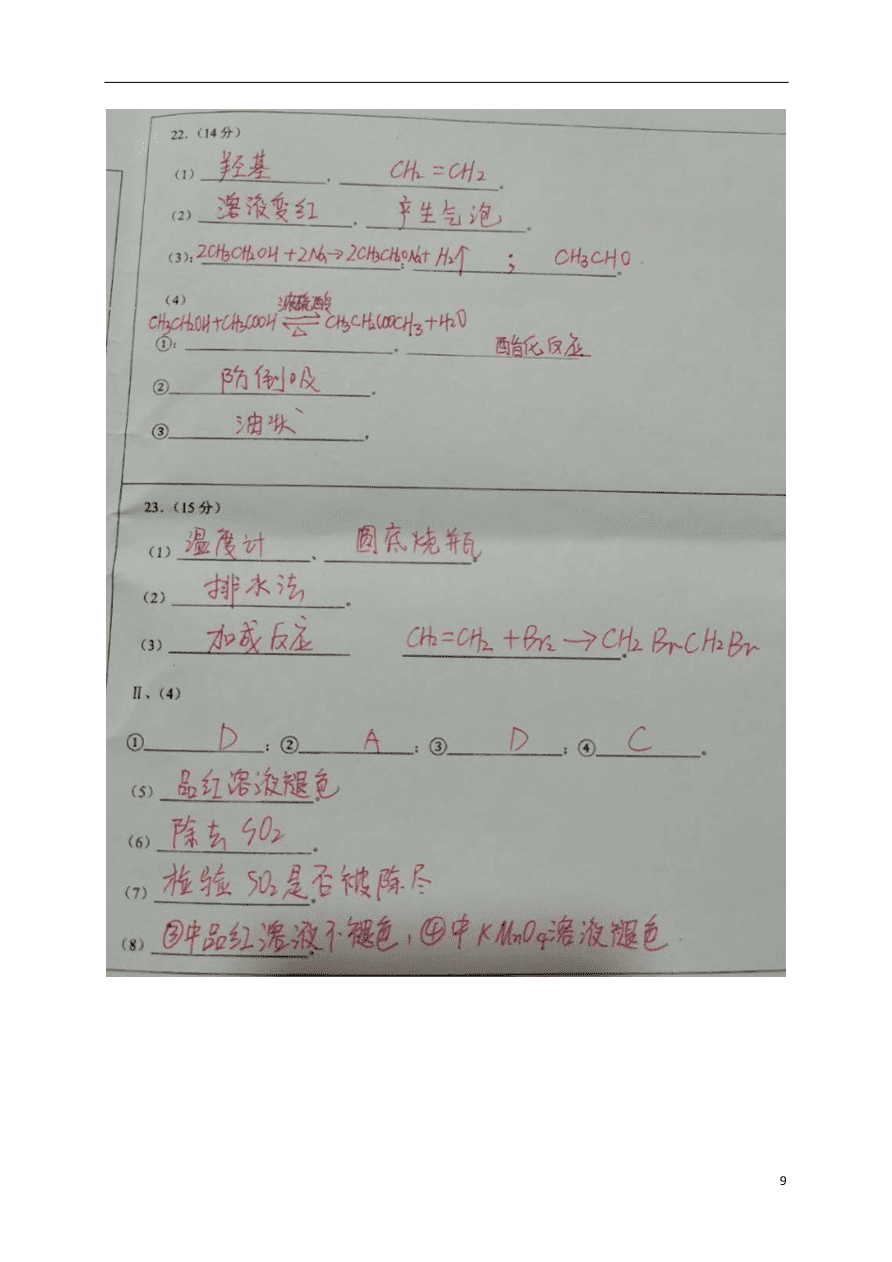 22.（14分）
（1）羟基 . CH2=CH2 .
（2）溶液变红 . 产生气泡 .
（3）：2CH3CH2OH+2Na→2CH3CH2ONa+H2↑ ； CH3CHO .
（4） 浓硫酸
CH3CH2OH+CH3COOH ⇌ CH3CH2COOCH3+H2O
△
①： 。 酯化反应
② 防倒吸 。
③ 油状 ，
23.（15分）
（1）温度计 、 圆底烧瓶
（2）排水法 。
（3）加成反应 CH2=CH2+Br2→CH2BrCH2Br
Ⅱ、（4）
① D ；② A ；③ D ；④ C 。
（5）品红溶液褪色 。
（6）除去SO2 。
（7）检验SO2是否被除尽 。
（8）③中品红溶液不褪色，④中KMnO4溶液褪色 .
9